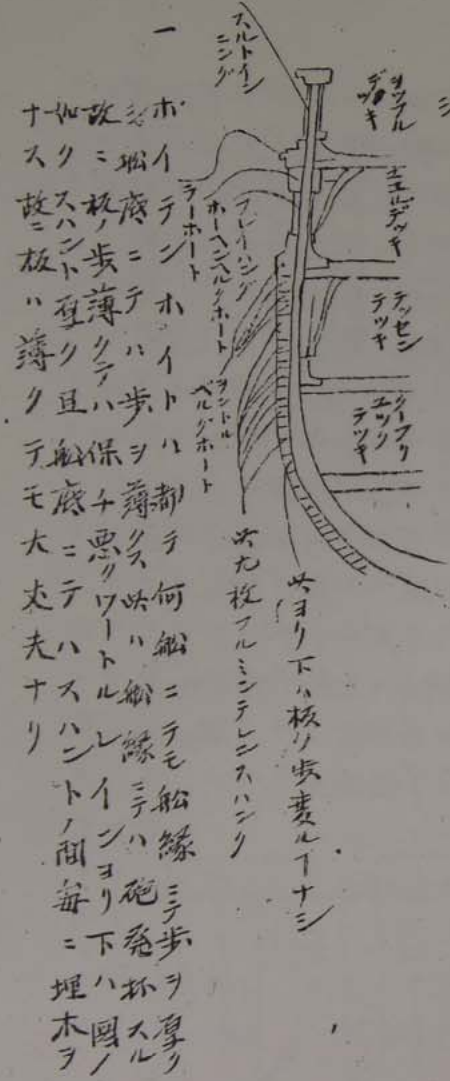 一
スルトイン
ニング
ヲップル
デッキ
エエルデッキ
テッセン
デッキ
クーブリ
ユック
デッキ
ラーホート
ブレイハング
ホーヘンヘルグホート
ヲントル
ベルグホート
此ヨリ下ハ板ノ歩変ルヿナシ
此九枚フルミンテレンスハング
ホイテンホイトハ都テ何船ニテモ船縁ニテ歩ヲ厚ク
シ船底ニテハ歩ヲ薄クス此ハ船縁ニテハ砲発抔スル
故ニ板ノ歩薄クテハ保チ悪クワートルレインヨリ下ハ図ノ
如クスハント重ク且船底ニテハスハントノ間毎ニ埋木ヲ
ナス故ニ板ハ薄クテモ大丈夫ナリ